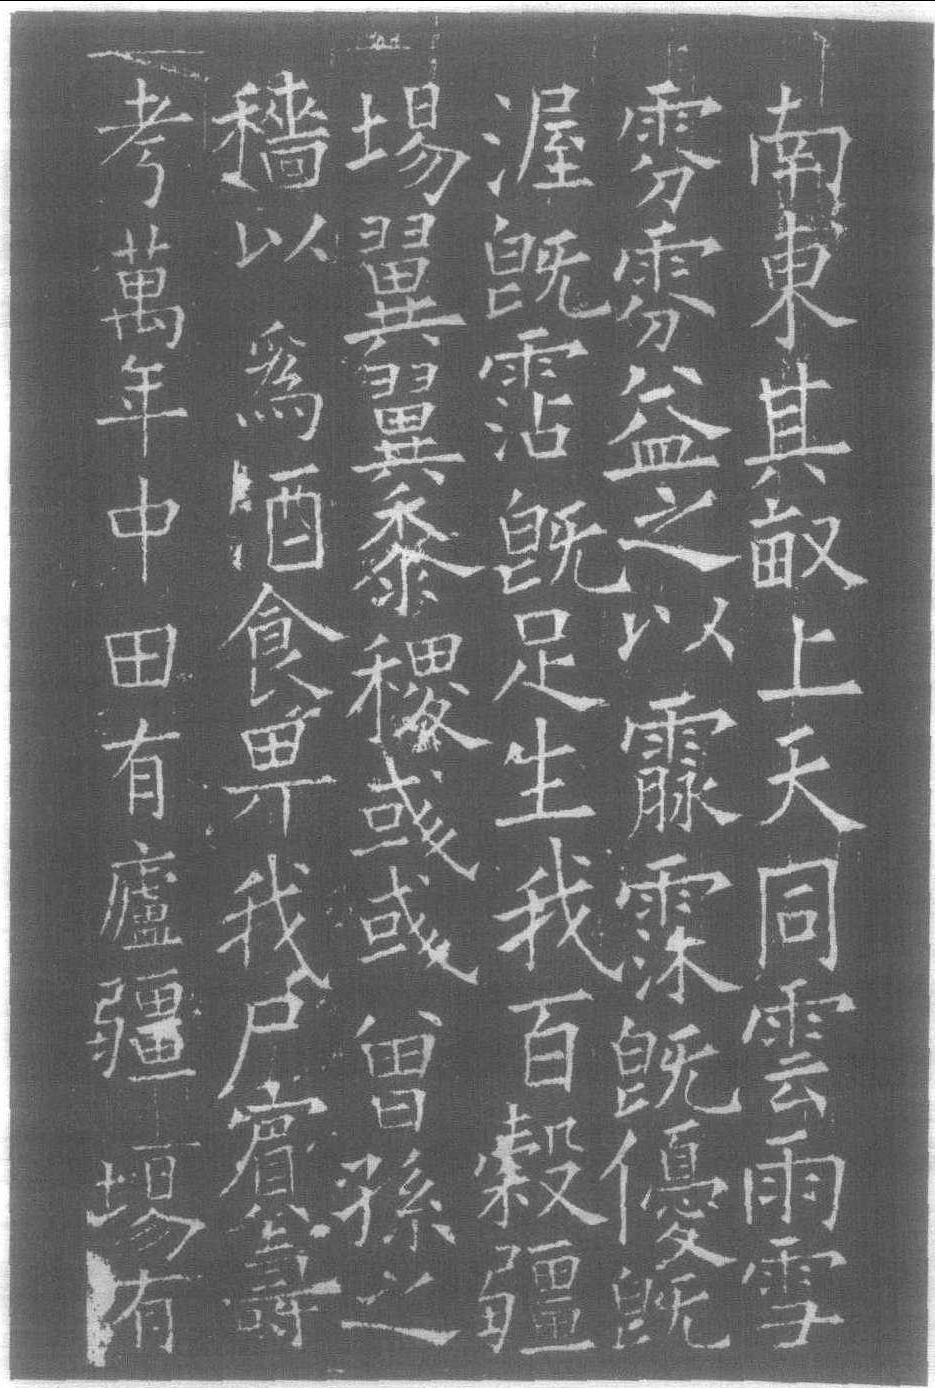 南東其畝上天同雲雨雪
雰雰益之以霡霂既優既
渥既霑既足生我百穀疆
埸翼翼黍稷彧彧曾孫之
穡以為酒食畀我尸賓壽
考萬年中田有廬疆埸有